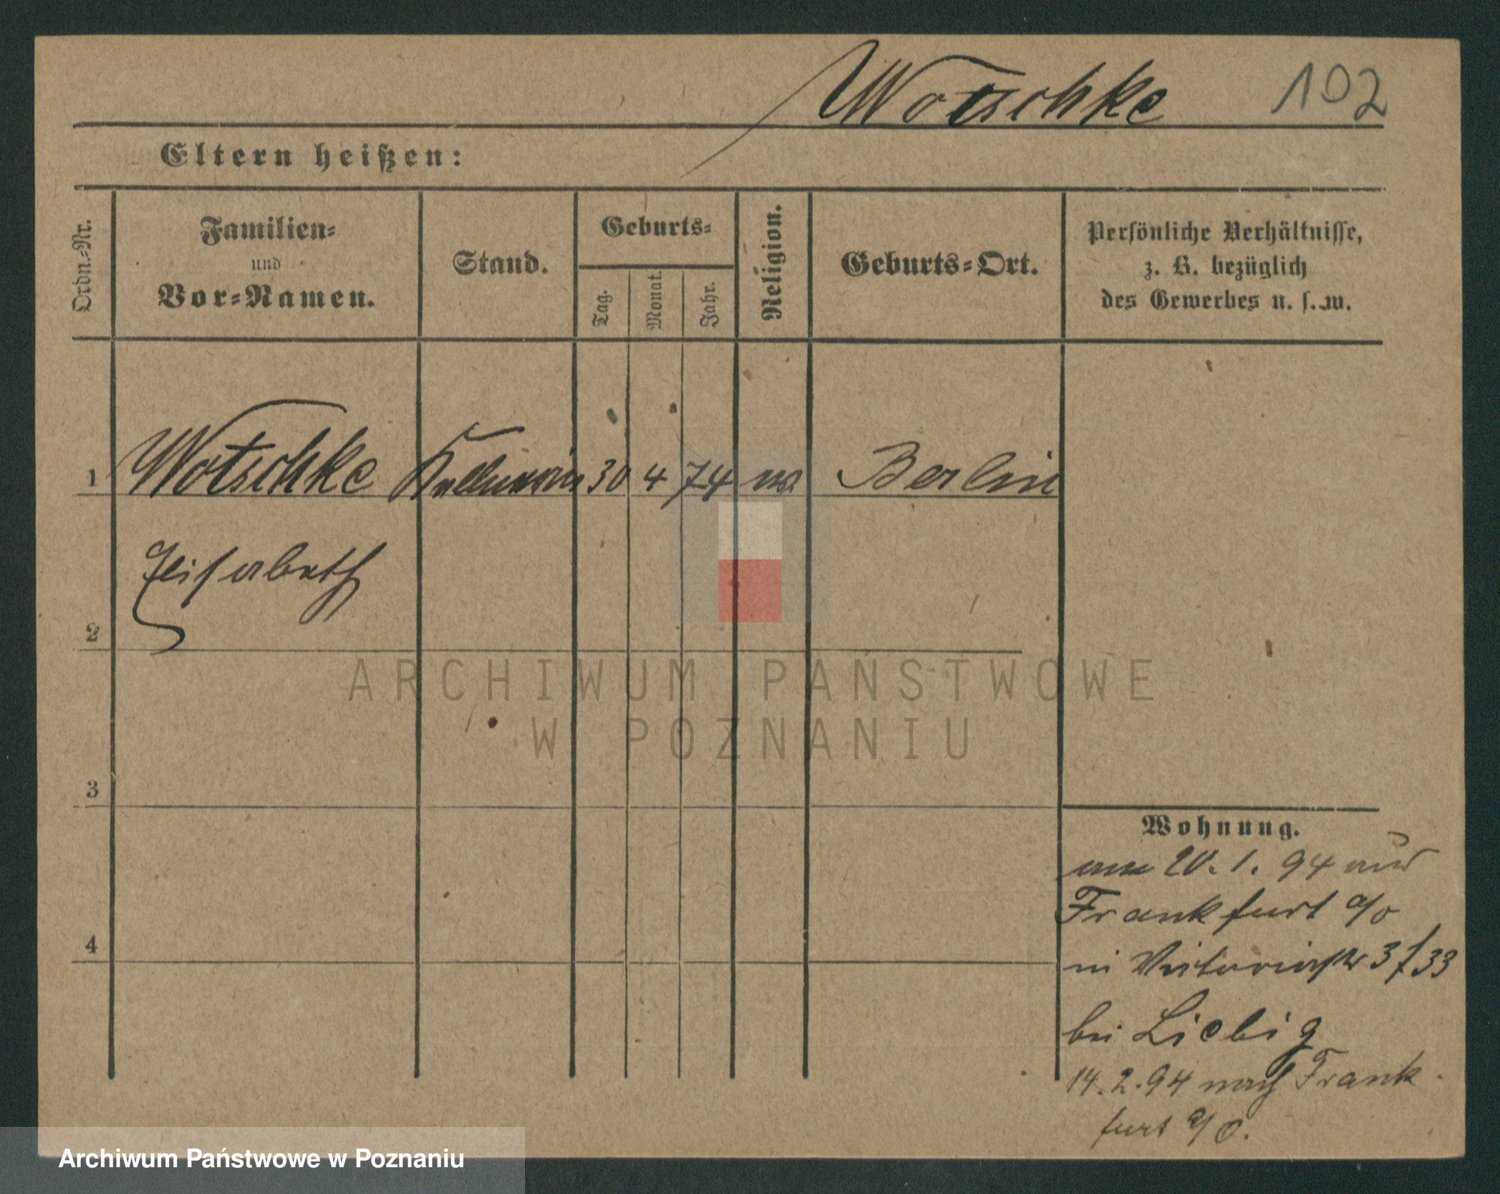 Wotschke 102
Eltern heißen:
Ordn.-Nr.
Familien-
und
Vor-Namen.
Stand.
Geburts-
Tag.
Monat.
Jahr.
Religion.
Geburts-Ort.
Persönliche Verhältnisse,
z. B. bezüglich
des Gewerbes u. s. w.
1 Wotschke Kellnerin 30 4 74 Berlin
Elisabeth
2
3
4
Wohnung.
am 20. 1. 94 aus
Frankfurt a/o
in Victoriastr 33
bei Liebig
14. 2. 94 nach Frank
furt a/o.
ARCHIWUM PAŃSTWOWE
W POZNANIU
Archiwum Państwowe w Poznaniu